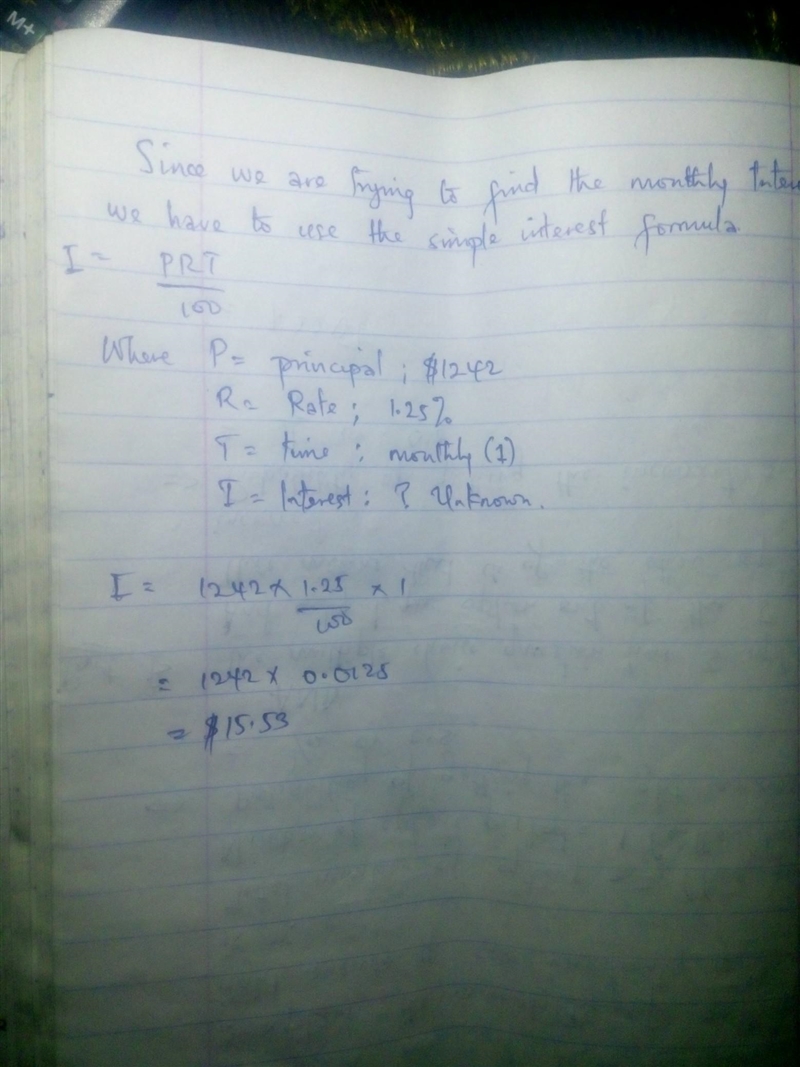 M+
Since we are trying to find the monthly Inter
we have to use the simple interest formula.
I = PRT
100
Where P = principal ; $1242
R = Rate ; 1.25%
T = time : monthly (1)
I = Interest : ? Unknown.
I = 1242 x 1.25 x 1
100
= 1242 x 0.0125
= $15.53